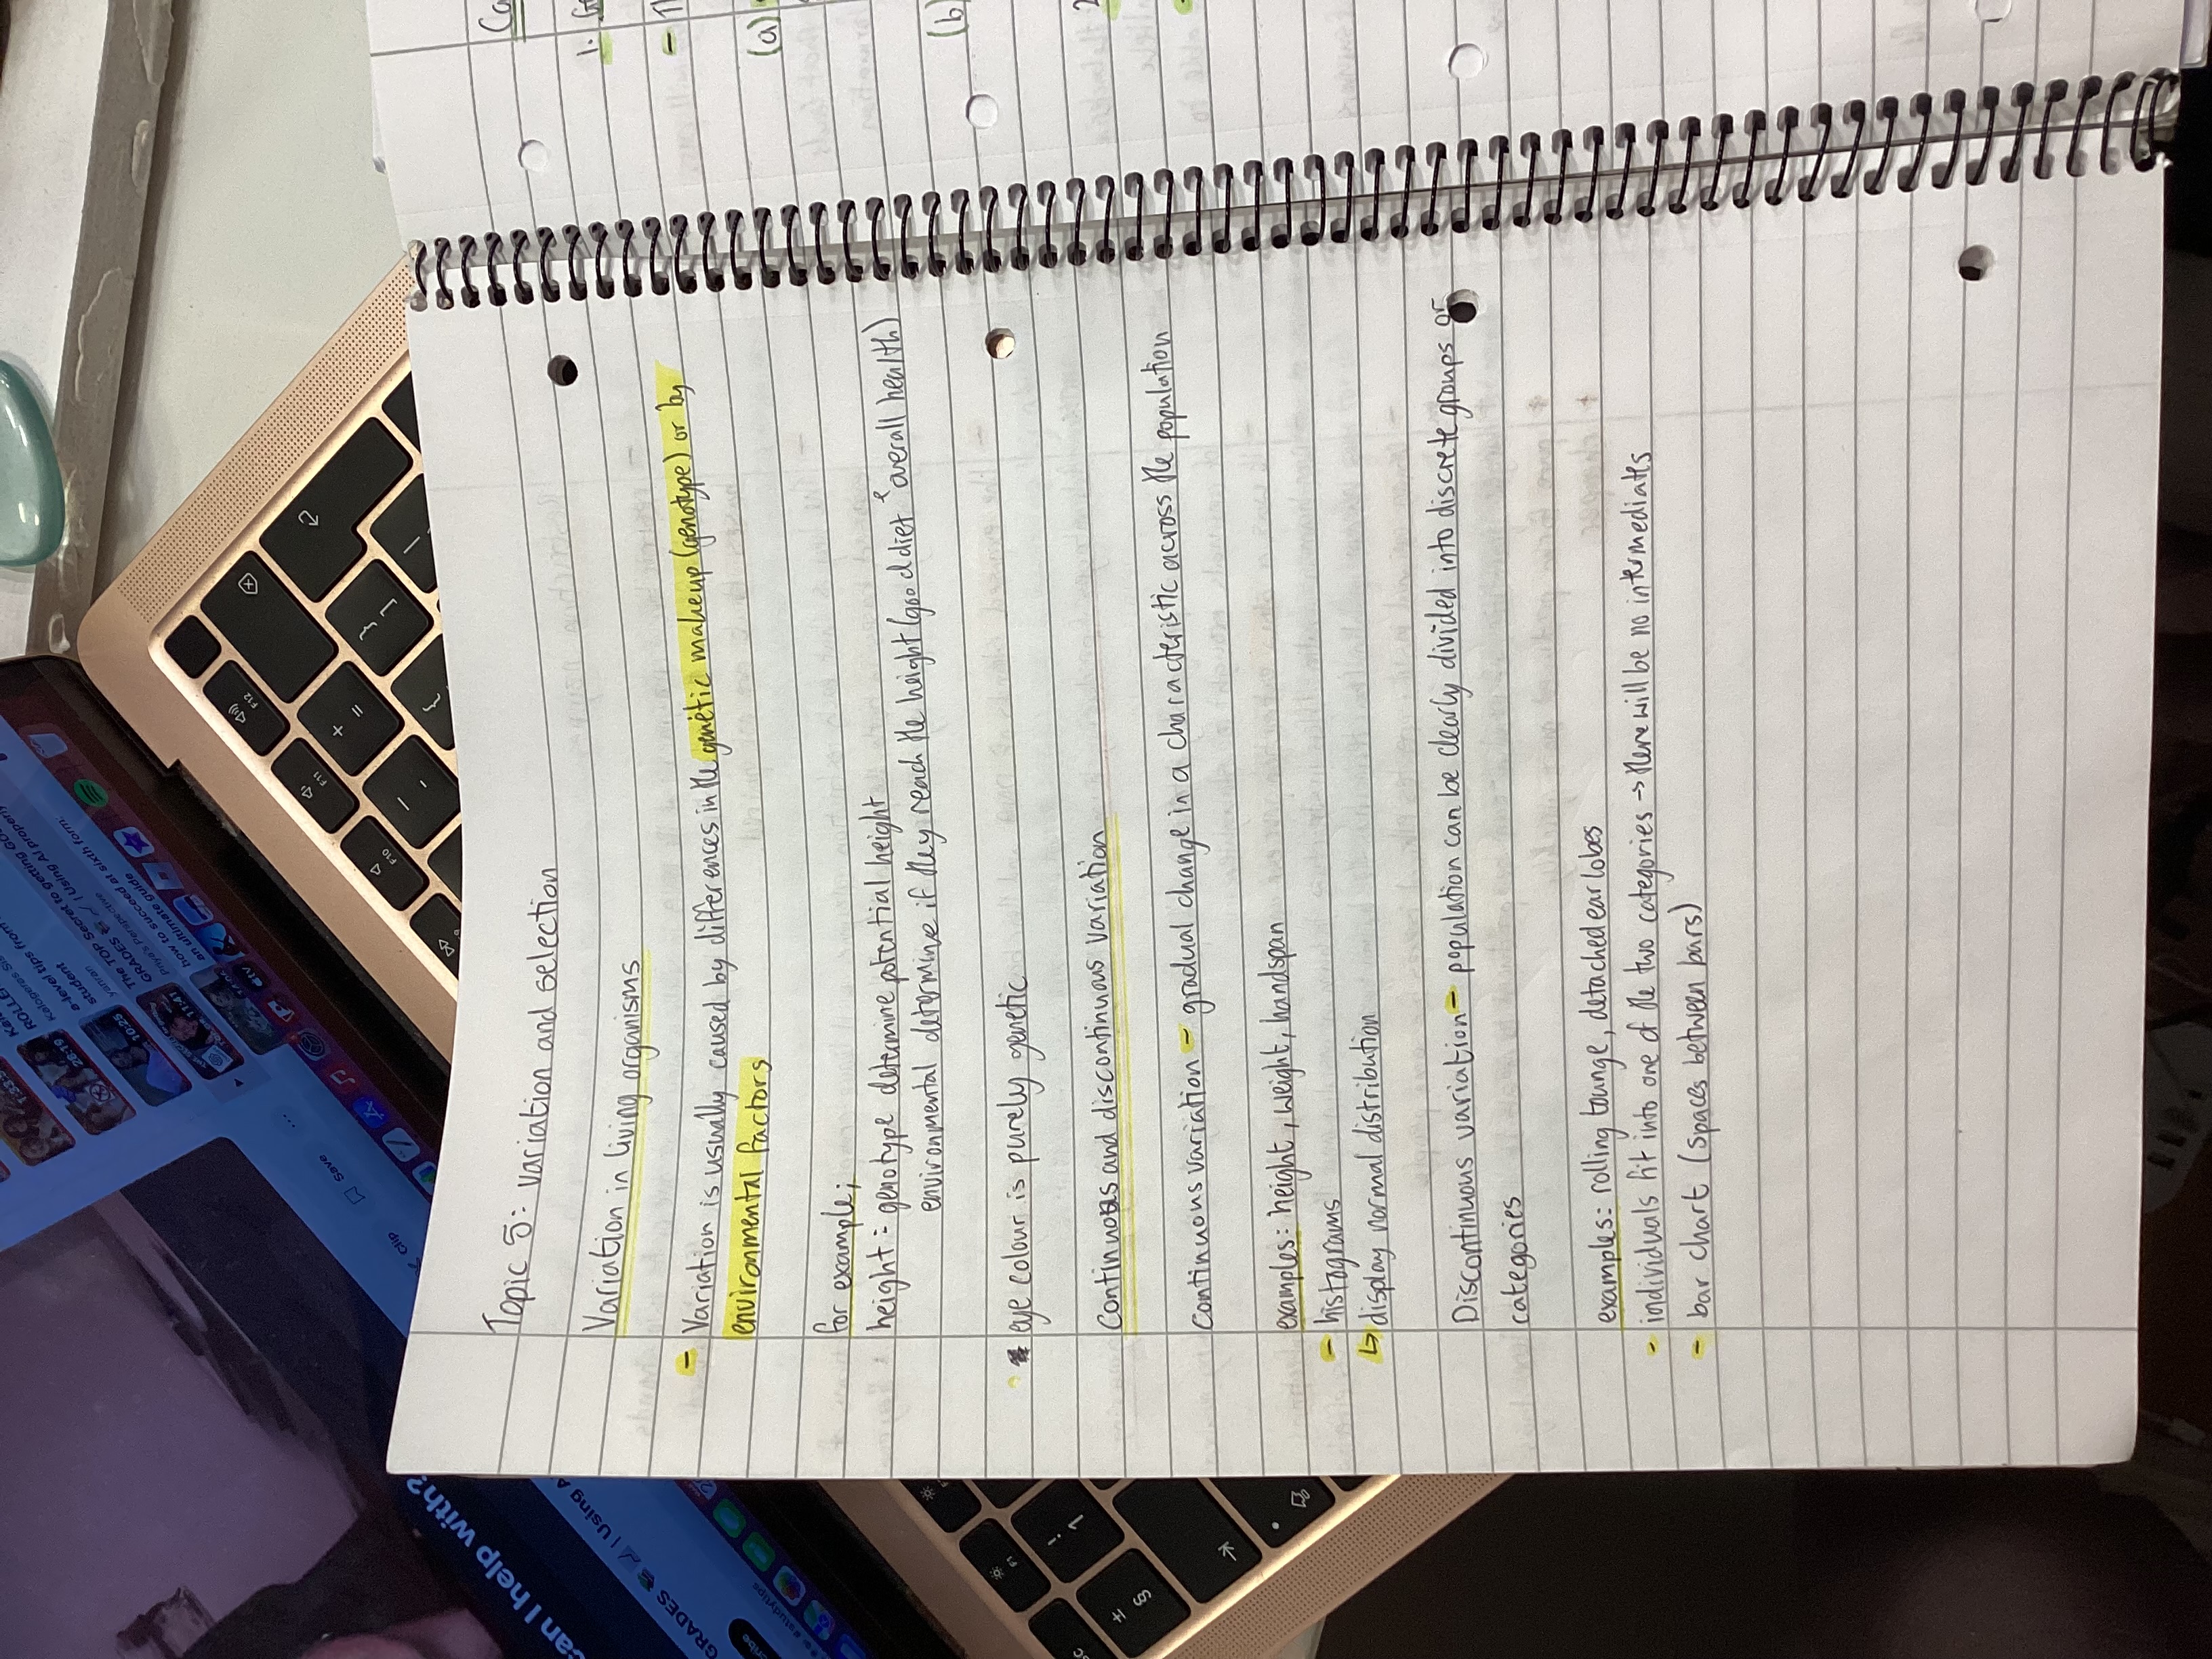 Topic 5: variation and selection
Variation in living organisms
- Variation is usually caused by differences in the genetic makeup (genotype) or by
environmental factors
for example;
height: genotype determine potential height
environmental determine if they reach the height (good diet & overall health)
eye colour is purely genetic
Continuous and discontinuous variation
Continuous variation - gradual change in a characteristic across the population
examples: height, weight, handspan
- histograms
↳ display normal distribution
Discontinuous variation - population can be clearly divided into discrete groups or
categories
examples: rolling tounge, detached ear lobes
- individuals fit into one of the two categories → there will be no intermediates
- bar chart (spaces between bars)
1.
(a)
(b)
2
can I help with?
The TOP secret to getting
GRADES
how to succeed at sixth form.
an ultimate guide
a-level tips from
student
28:19
10:25
11:41
Save
Clip
F12
F11
F10
F1